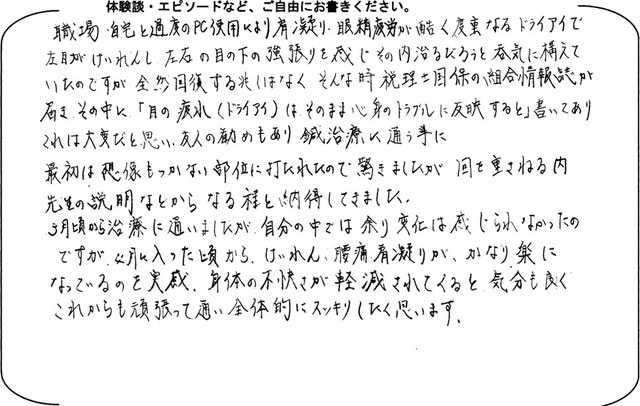 体験談・エピソードなど、ご自由にお書きください。
職場・自宅と過度のPC使用により肩凝り・眼精疲労が酷く度重なるドライアイで
左目がけいれんし、左右の目の下の強張りを感じその内治るだろうと呑気に構えて
いたのですが全然回復する兆しはなく、そんな時税理士国保の組合情報誌が
届き、その中に「目の疲れ(ドライアイ)は、そのまま心身のトラブルに反映すると」書いてあり
これは大変だと思い、友人の勧めもあり鍼治療に通う事に
最初は想像もつかない部位に打たれたので驚きましたが回を重ねる内
先生の説明などからなる程と納得してきました。
3月頃から治療に通いましたが、自分の中では余り変化は感じられなかったの
ですが、4月に入った頃から、けいれん、腰痛、肩凝りが、かなり楽に
なっているのを実感、身体の不快さが軽減されてくると気分も良く
これからも頑張って通い全体的にスッキリしたく思います。